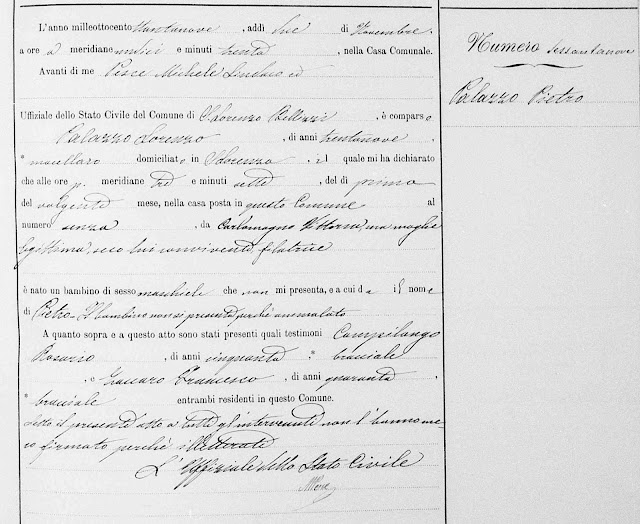 L'anno milleottocento Novantanove, addì due di Novembre,
a ore a meridiane undici e minuti trenta, nella Casa Comunale.
Avanti di me Pesce Michele Sindaco ed
Uffiziale dello Stato Civile del Comune di S. Lorenzo Bellizzi, è comparso
Palazzo Lorenzo, di anni trentanove
* macellaro domiciliato in S. Lorenzo, il quale mi ha dichiarato
che alle ore p. meridiane tre e minuti sette, del dì primo
del volgente mese, nella casa posta in questo Comune al
numero senza, da Carlomagno Vittoria, sua moglie
legittima, seco lui convivente, filatrice
è nato un bambino di sesso maschile che non mi presenta, e a cui dà il nome
di Pietro. Il bambino non si presenta perchè ammalato
A quanto sopra e a questo atto sono stati presenti quali testimoni Campilongo
Rosario, di anni cinquanta * bracciale
, e Zaccaro Francesco, di anni quaranta
* bracciale entrambi residenti in questo Comune.
Letto il presente atto a tutti gl'intervenuti non l'hanno me-
co firmato perchè illetterati
L'Uffiziale dello Stato Civile
Numero sessantanove
Palazzo Pietro